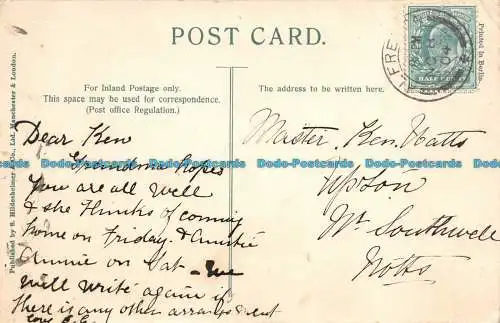 POST CARD.
For Inland Postage only.
This space may be used for correspondence.
(Post office Regulation.)
The address to be written here.
Dear Ken
Grandma hopes
you are all well
& she thinks of coming
home on Friday. & Auntie
Annie on Sat - we
will write again if
there is any other arrangement
Master. Ken. Watts
Upton
Nr. Southwell
Notts
Published by S. Hildesheimer & Co., Ltd. Manchester & London.
Printed in Berlin.
HALF PENNY
Dodo-Postcards Dodo-Postcards Dodo-Postcards Dodo-Postcards Dodo-Postcards